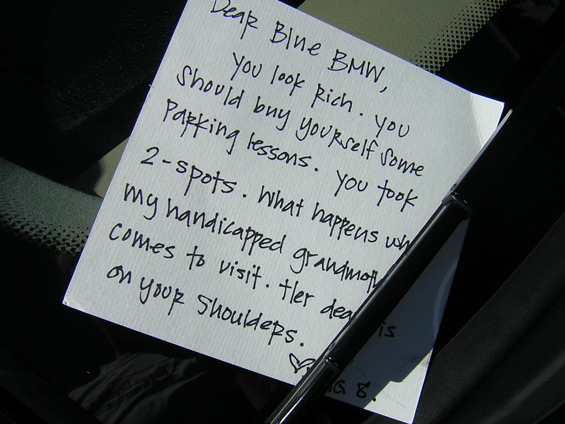 Dear Blue BMW,
You look rich. You
should buy yourself some
parking lessons. You took
2-spots. What happens wh
my handicapped grandmoth
comes to visit. Her dea is
on your shoulders.
♡ G 8.